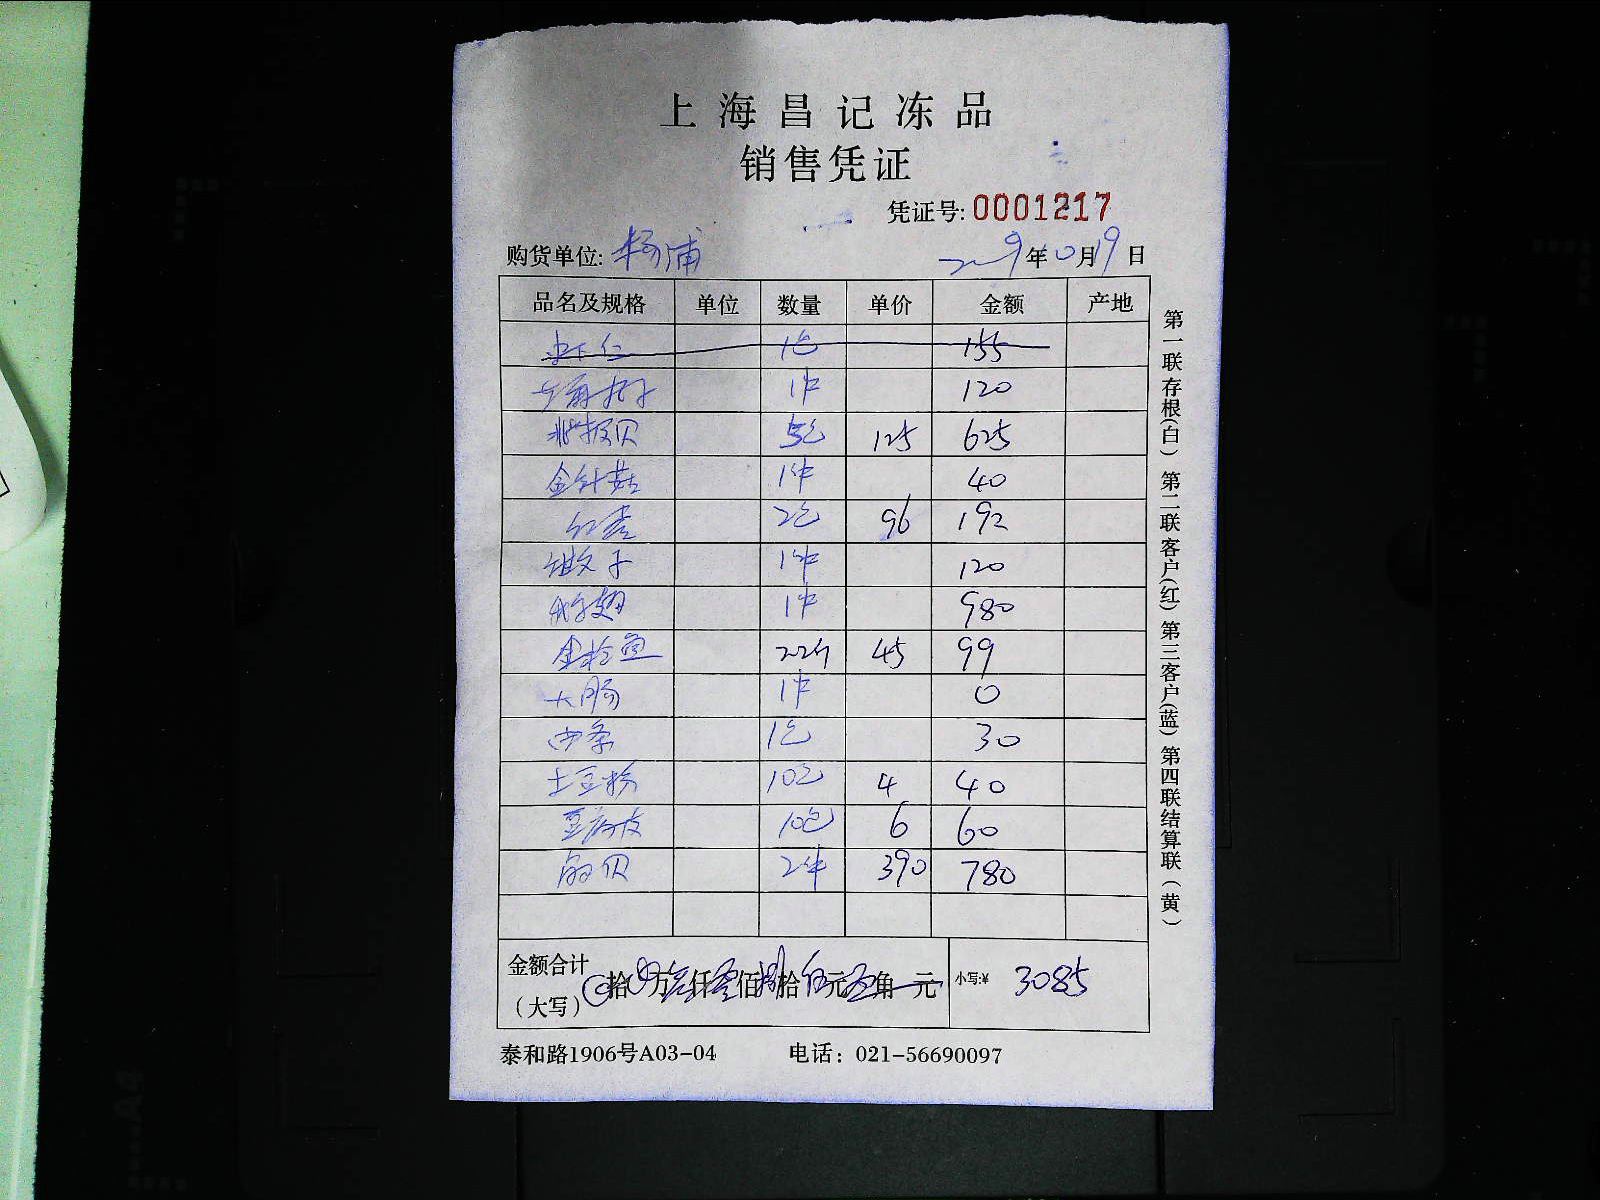 上海昌记冻品
销售凭证
凭证号: 0001217
购货单位: 杨浦 2019年10月19日
品名及规格 单位 数量 单价 金额 产地
虾仁 1包 155
1件 120
北极贝 5包 125 625
金针菇 1件 40
2包 96 192
1件 120
1件 980
金枪鱼 2.2斤 45 99
大肠 1件 0
1包 30
土豆粉 10包 4 40
豆腐皮 10包 6 60
扇贝 2件 390 780
金额合计
(大写) 拾 万 仟 佰 拾 元 角 元 小写:¥ 3085
泰和路1906号A03-04 电话: 021-56690097
第一联存根(白) 第二联客户(红) 第三客户(蓝) 第四联结算联(黄)